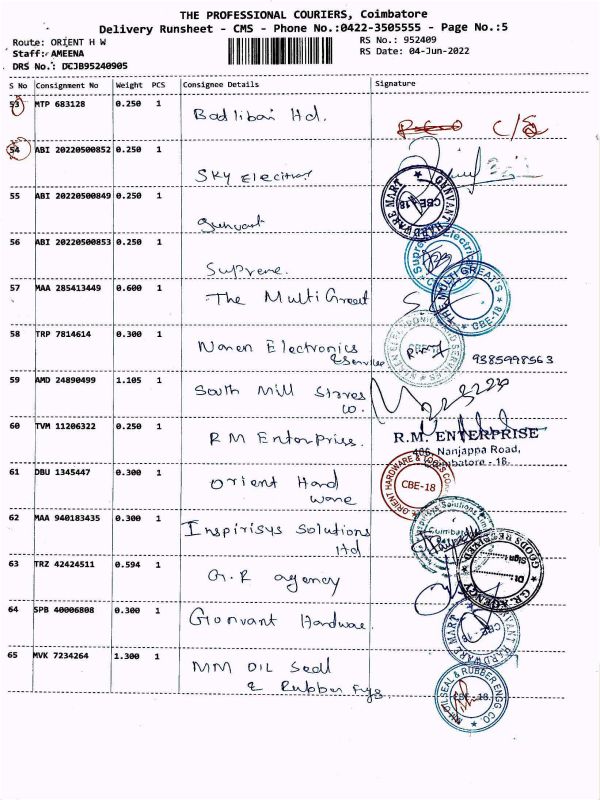 THE PROFESSIONAL COURIERS, Coimbatore
Delivery Runsheet - CMS - Phone No.:0422-3505555 - Page No.:5
Route: ORIENT H W
RS No.: 952409
Staff: AMEENA
RS Date: 04-Jun-2022
DRS No.: DCJB95240905
S No Consignment No Weight PCS Consignee Details Signature
53 MTP 683128 0.250 1 Badlibai Hd.
54 ABI 20220500852 0.250 1 Sky Electrical
55 ABI 20220500849 0.250 1 Gunvant
GUNVANT HARDWARE MART CBE-18
56 ABI 20220500853 0.250 1 Supreme.
57 MAA 285413449 0.600 1 The MultiGreat
THE MULTI GREAT'S CBE-18
58 TRP 7814614 0.300 1 Naren Electronics
& Service
9385998563
59 AMD 24890499 1.105 1 South Mill Stores
co.
60 TVM 11206322 0.250 1 R M Enterprises.
R.M. ENTERPRISE
406, Nanjappa Road,
Coimbatore - 18.
61 DBU 1345447 0.300 1 Orient Hard
ware
ORIENT HARDWARE & TOOLS CO. CBE-18
62 MAA 940183435 0.300 1 Inspirisys Solutions
ltd
63 TRZ 42424511 0.594 1 G.R agency
GOODS RECEIVED G.R. AGENCY
64 SPB 40006808 0.300 1 Gunvant Hardware.
65 MVK 7234264 1.300 1 MM OIL Seal
& Rubber
OILSEAL & RUBBER ENGG CO. CBE-18.